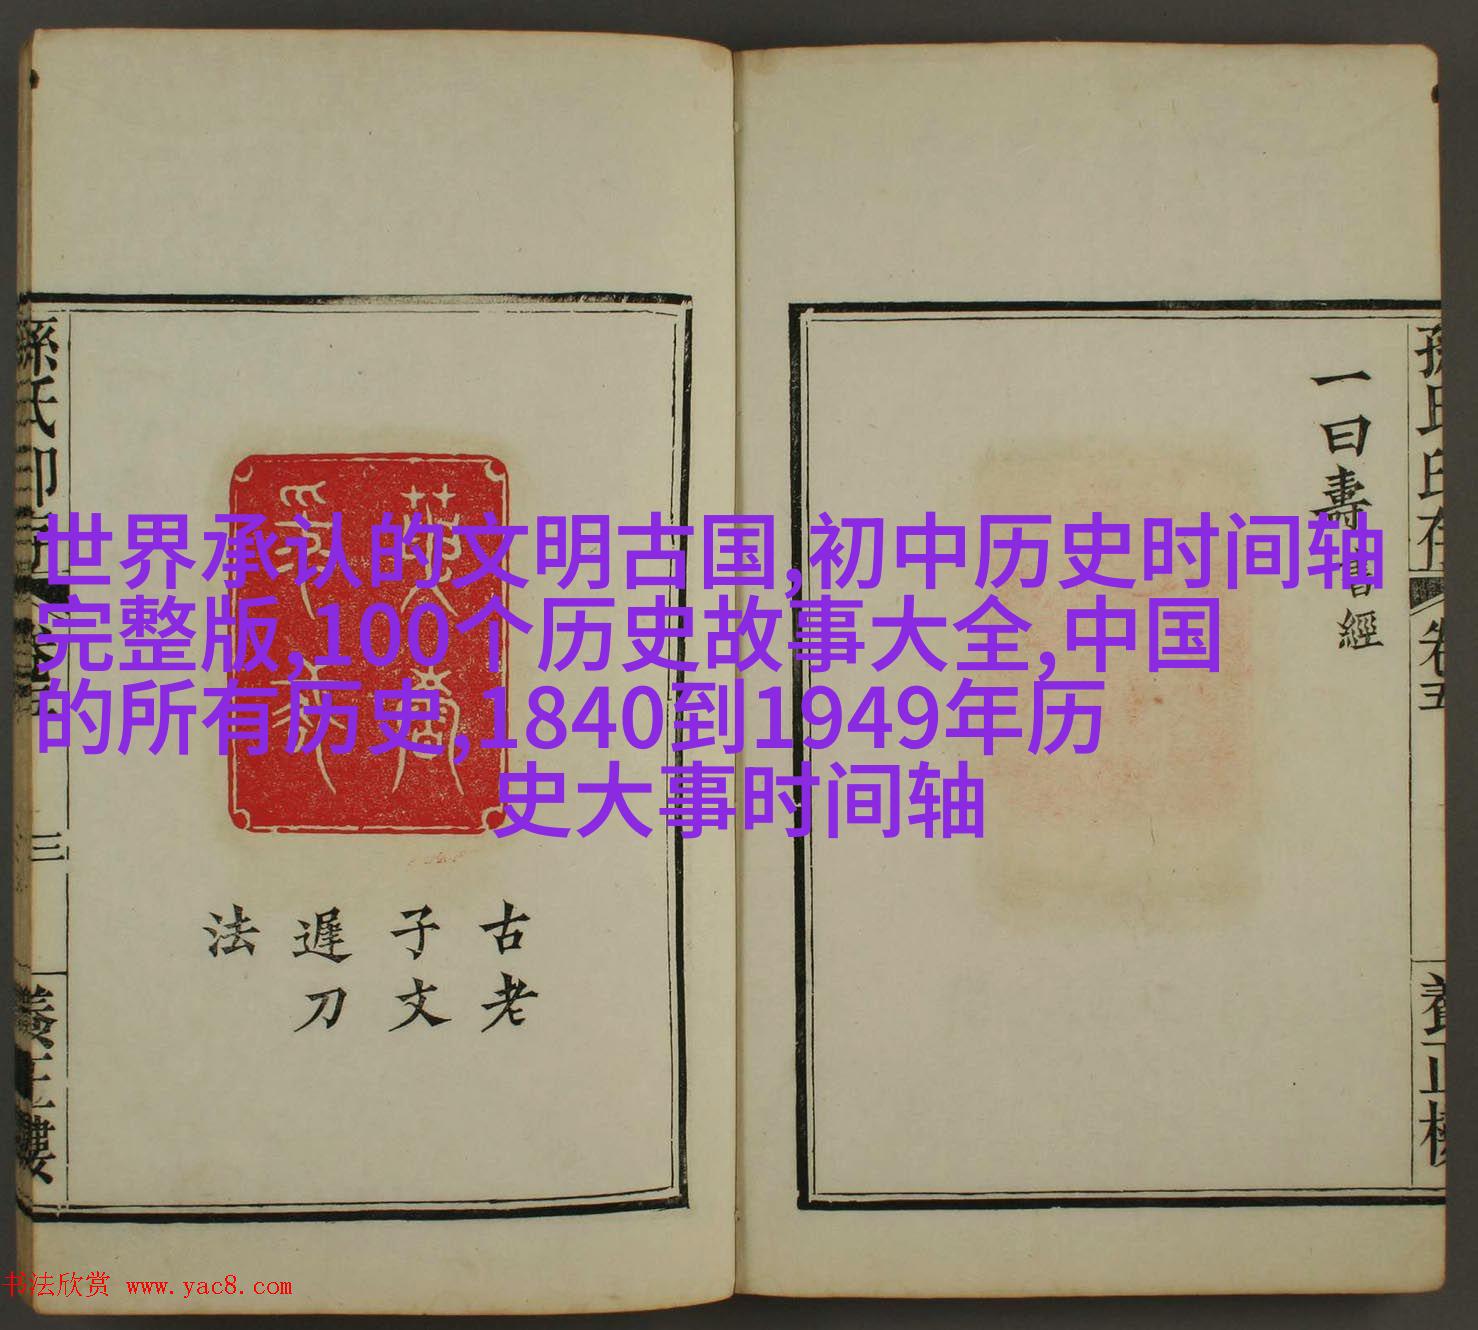 世界承认的文明古国,初中历史时间轴
完整版,100个历史故事大全,中国
的所有历史,1840到1949年历
史大事时间轴
一曰壽
書經
卷五
養正樓
孫氏印
三
養正樓
古老
子文
遲刀
法
书法欣赏 www.yac8.com